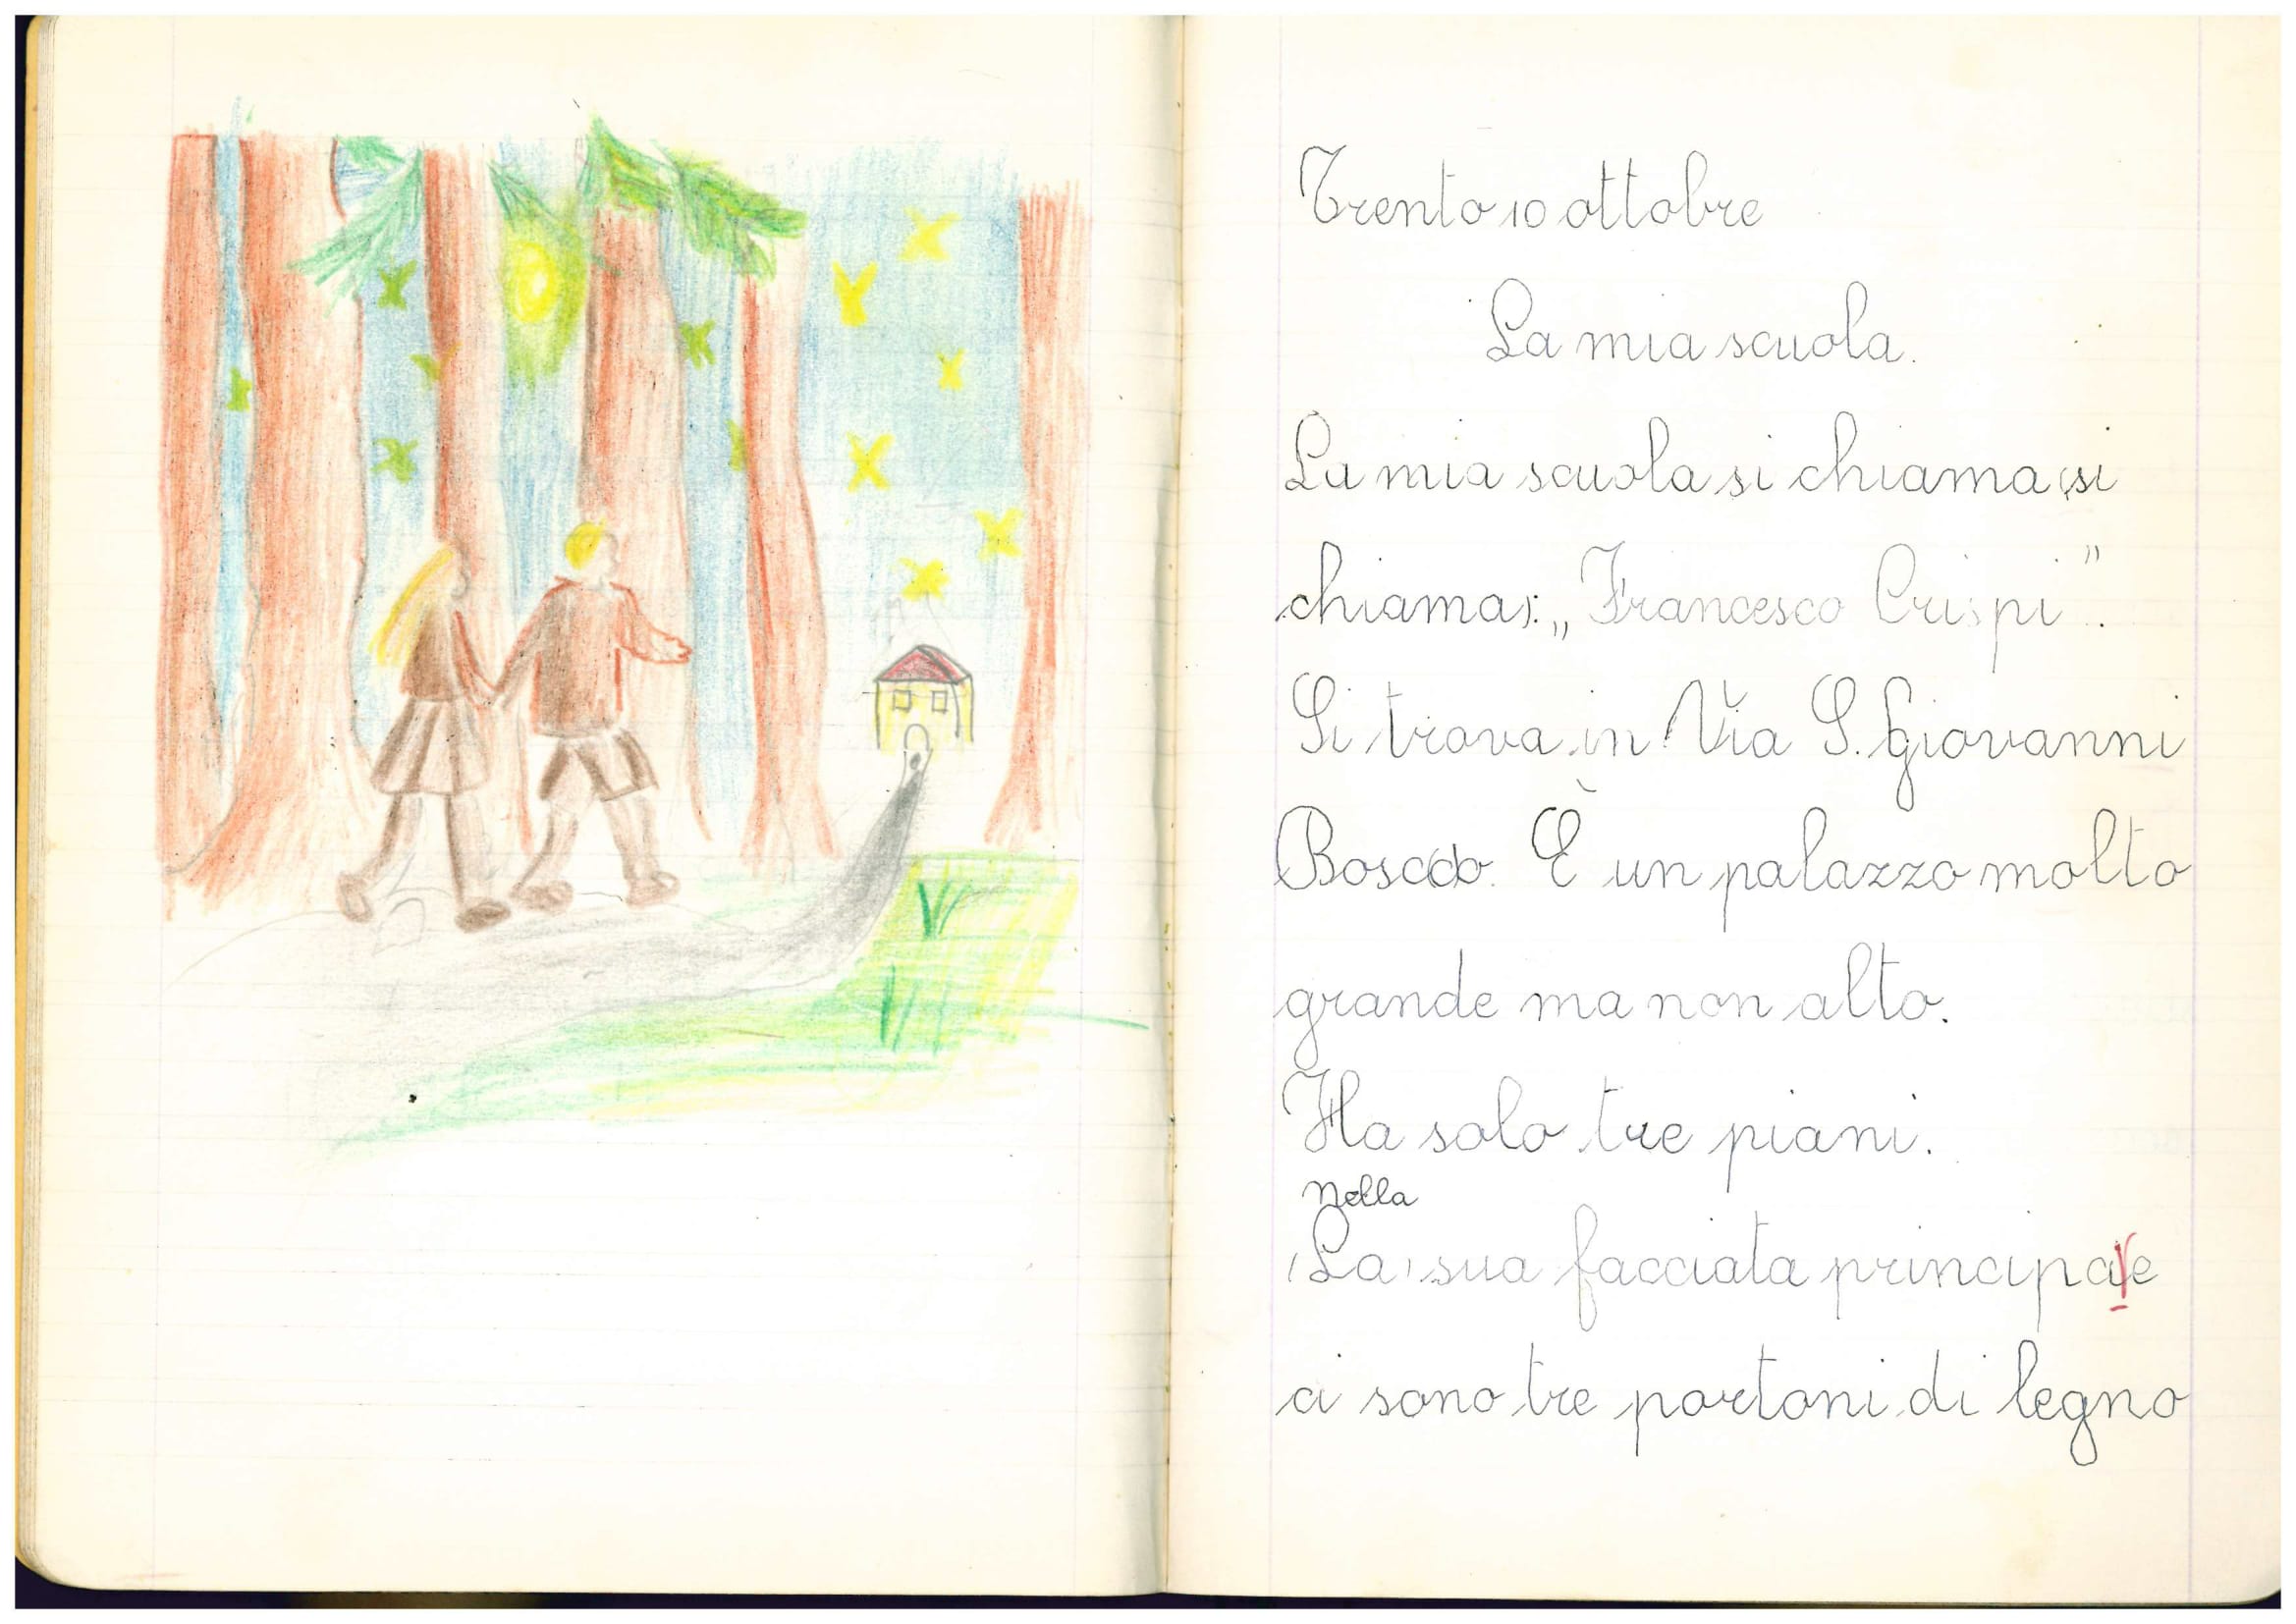 Trento 10 ottobre
La mia scuola.
La mia scuola si chiama (si
chiama): „Francesco Crispi".
Si trova in Via S. Giovanni
Bosc(c)o. È un palazzo molto
grande ma non alto.
Ha solo tre piani.
Nella
(La) sua facciata principale
ci sono tre portoni di legno